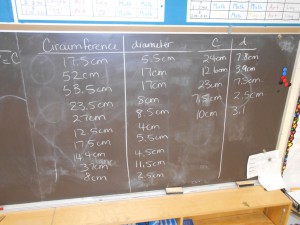 Circumference diameter C d
17.5cm 5.5cm 24cm 7.8cm
52cm 17cm 12cm 3.9cm
53.5cm 17cm 23cm 7.5cm
23.5cm 8cm 2.5cm
27cm 8.5cm 10cm 3.1
12.5cm 4cm
17.5cm 5.5cm
14.4cm 4.5cm
37cm 11.5cm
8cm 2.5cm